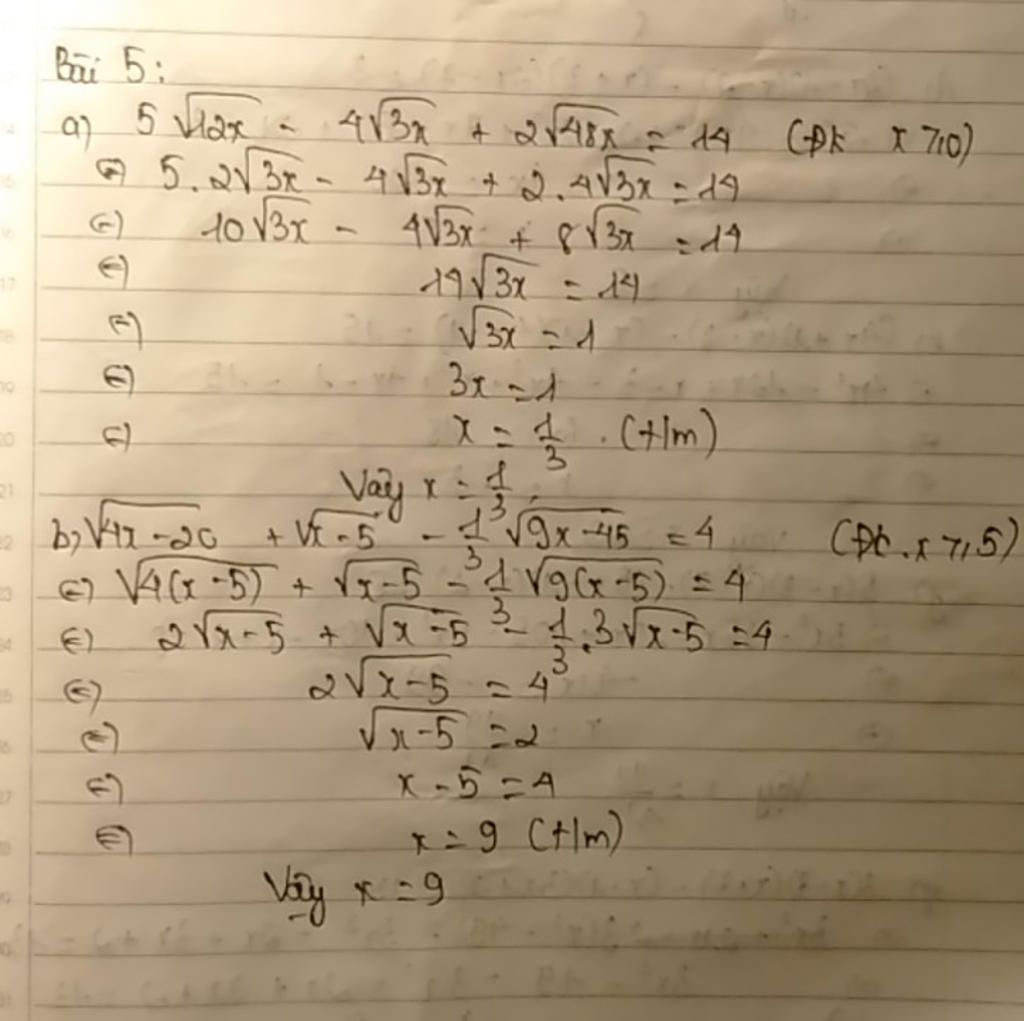 Bài 5:
a) 5√12x - 4√3x + 2√48x = 14 (ĐK x ≥ 0)
⇔ 5.2√3x - 4√3x + 2.4√3x = 14
⇔ 10√3x - 4√3x + 8√3x = 14
⇔ 14√3x = 14
⇔ √3x = 1
⇔ 3x = 1
⇔ x = 1/3. (t/m)
Vậy x = 1/3.
b) √4x-20 + √x-5 - 1/3 √9x-45 = 4 (ĐK. x ≥ 5)
⇔ √4(x-5) + √x-5 - 1/3 √9(x-5) = 4
⇔ 2√x-5 + √x-5 - 1/3.3√x-5 = 4
⇔ 2√x-5 = 4
⇔ √x-5 = 2
⇔ x-5 = 4
⇔ x = 9 (t/m)
Vậy x = 9